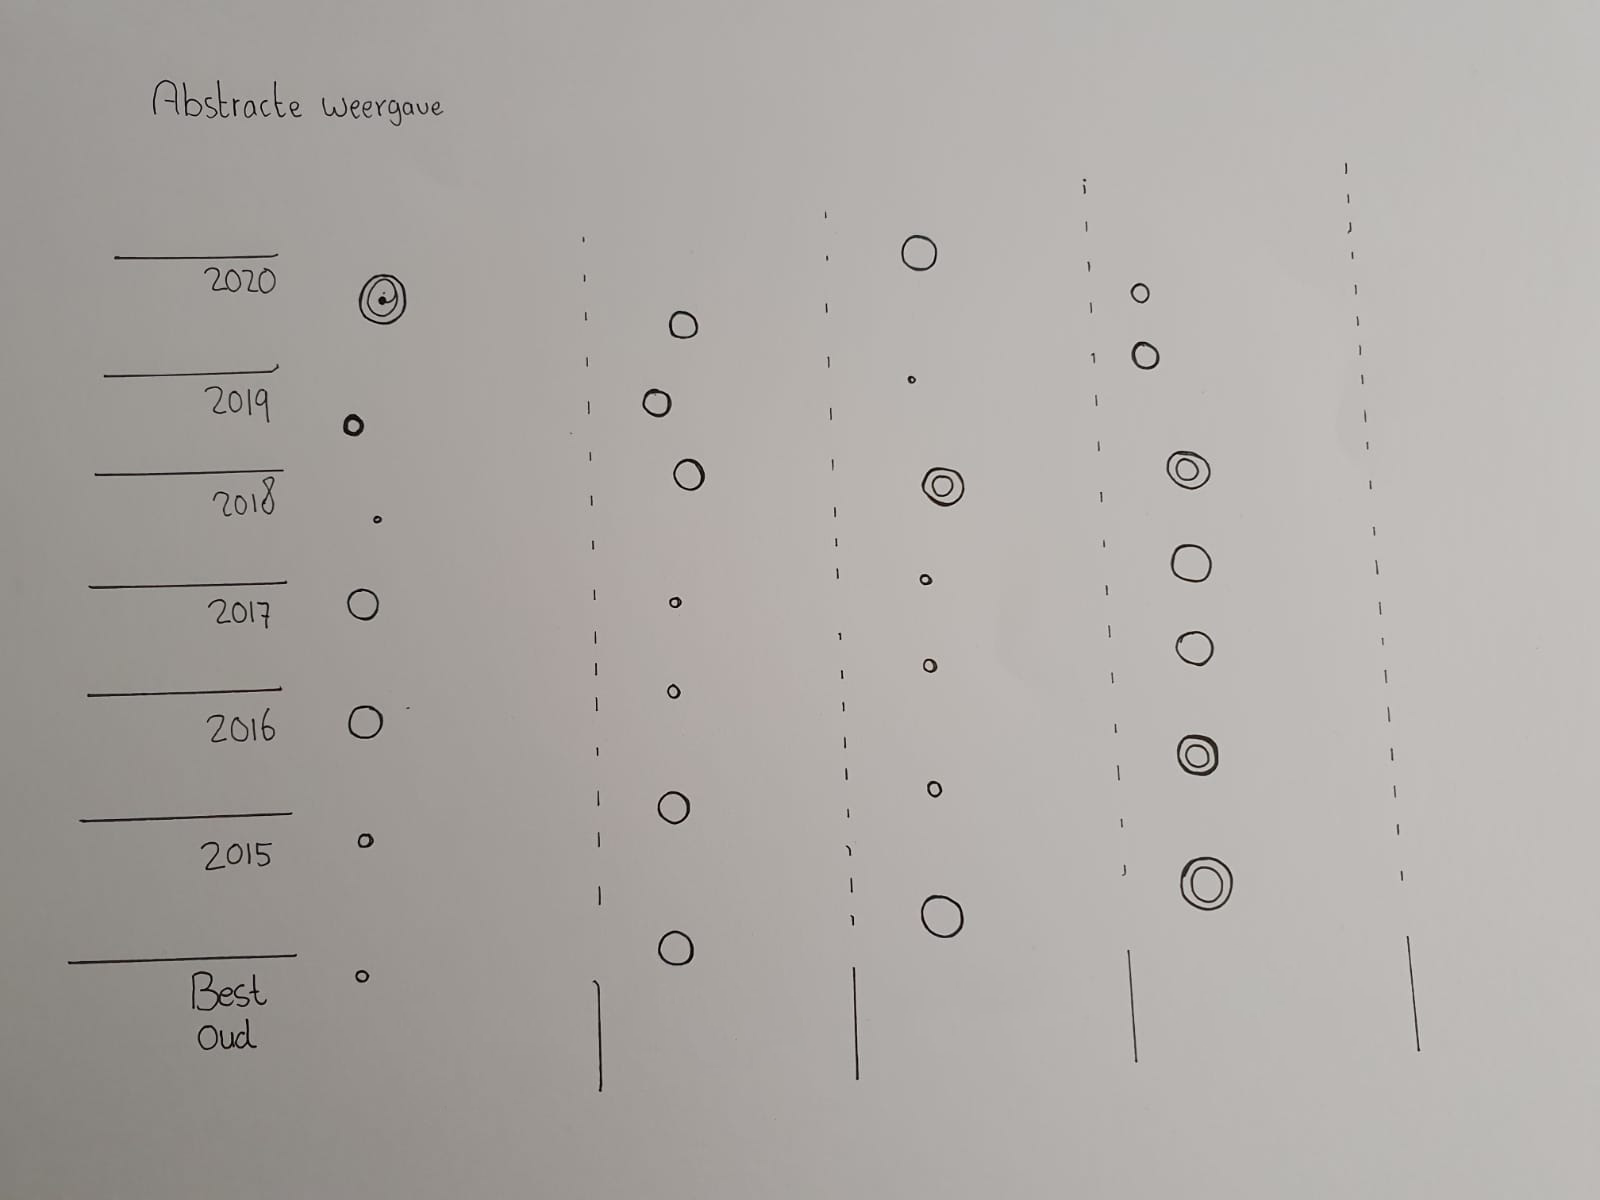 Abstracte weergave
2020
2019
2018
2017
2016
2015
Best
Oud